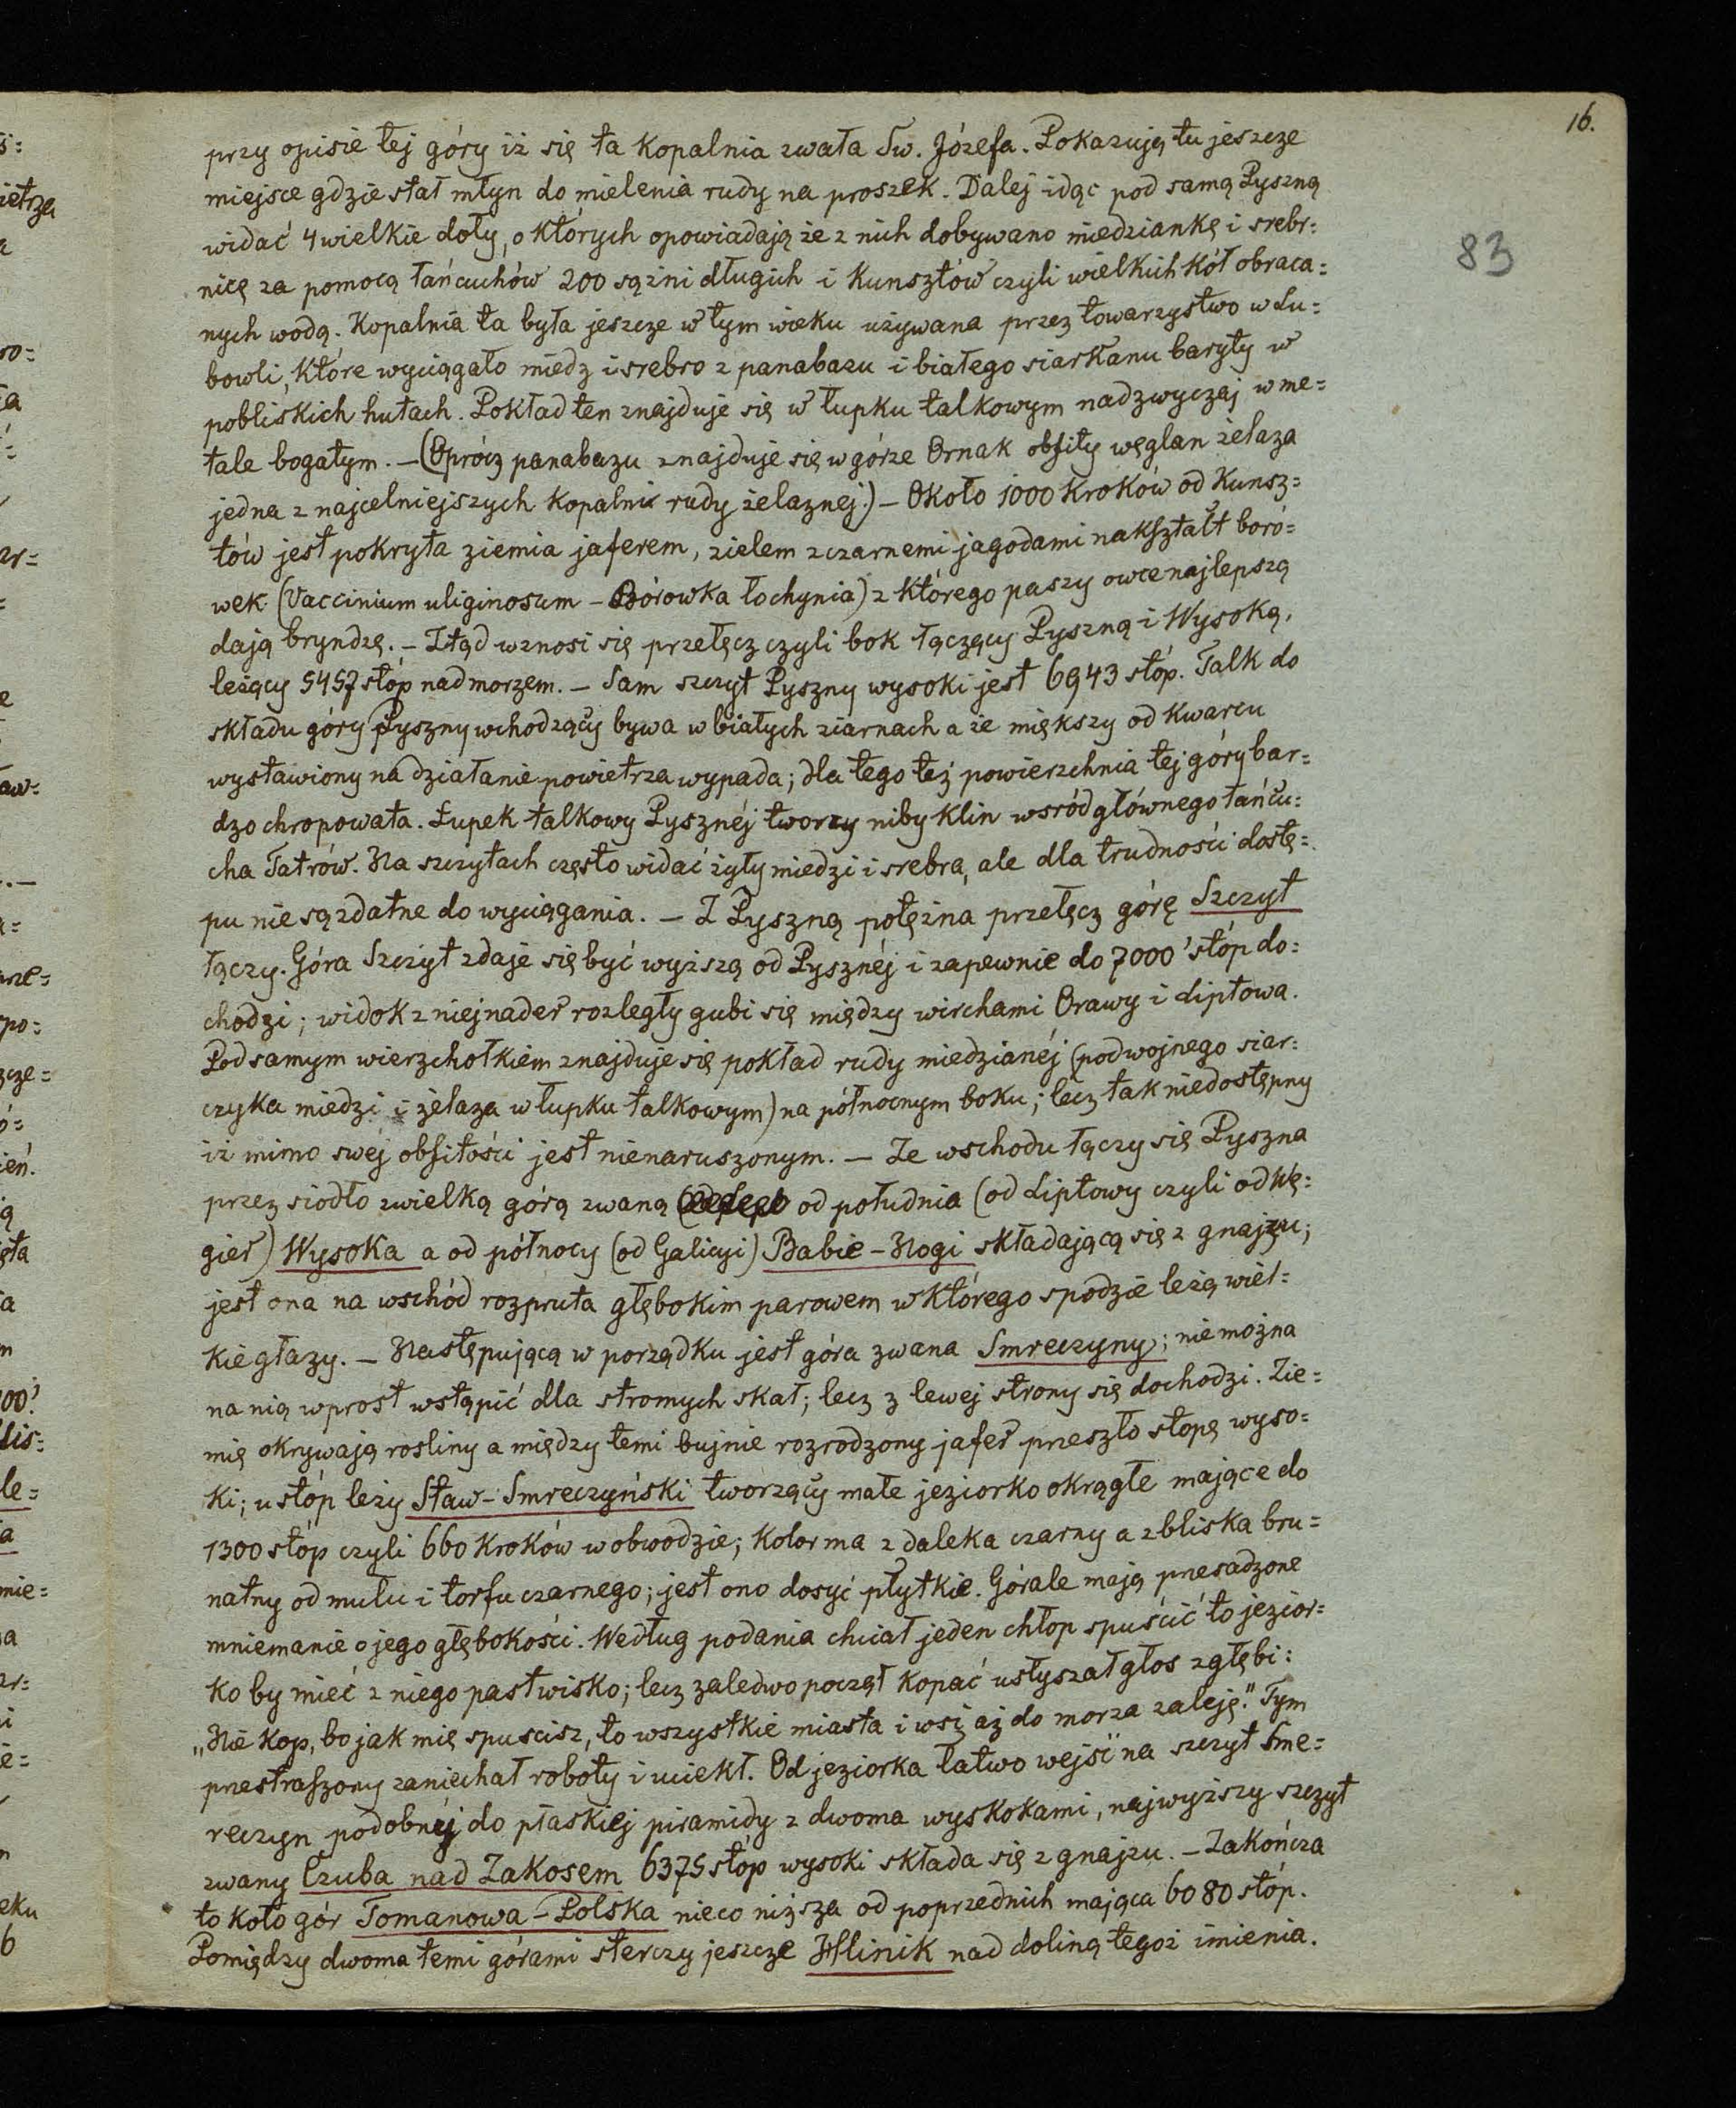 16.
83
przy opisie tej góry iż się ta kopalnia zwała Św. Józefa. Pokazują tu jeszcze
miejsce gdzie stał młyn do mielenia rudy na proszek. Dalej idąc pod samą Pyszną
widać 4 wielkie doły, o których opowiadają że z nich dobywano miedziankę i srebr=
nicę za pomocą łańcuchów 200 sążni długich i kunsztów czyli wielkich kół obraca=
nych wodą. Kopalnia ta była jeszcze w tym wieku używana przez towarzystwo w Lu=
bowli, które wyciągało miedz i srebro z panabazu i białego siarkanu baryty w
pobliskich hutach. Pokład ten znajduje się w łupku talkowym nadzwyczaj w me=
tale bogatym. — (Oprócz panabazu znajduje się w górze Ornak obfity węglan żelaza
jedna z najcelniejszych kopalni rudy żelaznej.) — Około 1000 kroków od kunsz=
tów jest pokryta ziemia jaferem, zielem z czarnemi jagodami nakształt boró=
wek (Vaccinium uliginosum — Borówka łochynia) z którego paszy owce najlepszą
dają bryndzę. — Ztąd wznosi się przełęcz czyli bok łączący Pyszną i Wysoką,
leżący 5457 stóp nad morzem. — Sam szczyt Pyszny wysoki jest 6943 stóp. Talk do
składu góry Pyszny wchodzący bywa w białych ziarnach a że miększy od kwarcu
wystawiony na działanie powietrza wypada; dla tego też powierzchnia tej góry bar=
dzo chropowata. Łupek talkowy Pysznéj tworzy niby klin wsród głównego łańcu=
cha Tatrów. Na szczytach często widać żyły miedzi i srebra, ale dla trudności dostę=
pu nie są zdatne do wyciągania. — Z Pyszną potężna przełęcz górę Szczyt
łączy. Góra Szczyt zdaje się być wyższą od Pysznéj i zapewnie do 7000' stóp do=
chodzi; widok z niej nader rozległy gubi się między wirchami Orawy i Liptowa.
Pod samym wierzchołkiem znajduje się pokład rudy miedzianéj (podwojnego siar=
czyka miedzi i żelaza w łupku talkowym) na północnym boku; lecz tak niedostępny
iż mimo swej obfitości jest nienaruszonym. — Ze wschodu łączy się Pyszna
przez siodło z wielką górą zwaną od południa (od Liptowy czyli od Wę=
gier) Wysoka a od północy (od Galicyi) Babie-Nogi składającą się z gnajzu;
jest ona na wschód rozpruta głębokim parowem w którego spodzie leżą wiel=
kie głazy. — Następującą w porządku jest góra zwana Smreczyny; nie można
na nią wprost wstąpić dla stromych skał; lecz z lewej strony się dochodzi. Zie=
mię okrywają rosliny a między temi bujnie rozrodzony jafer przeszło stopę wyso=
ki; u stóp leży Staw-Smreczyński tworzący małe jeziorko okrągłe mające do
1300 stóp czyli 660 kroków w obwodzie; kolor ma z daleka czarny a z bliska bru=
natny od mułu i torfu czarnego; jest ono dosyć płytkie. Górale mają przesadzone
mniemanie o jego głębokości. Według podania chciał jeden chłop spuścić to jezior=
ko by mieć z niego pastwisko; lecz zaledwo począł kopać usłyszał głos z głębi:
„Nie kop, bo jak mię spuscisz, to wszystkie miasta i wsi aż do morza zaleję." Tym
przestraszony zaniechał roboty i uciekł. Od jeziorka łatwo wejść na szczyt Sme=
reczyn podobnéj do płaskiej piramidy z dwoma wyskokami, najwyższy szczyt
zwany Czuba nad Zakosem 6375 stóp wysoki składa się z gnajzu. — Zakończa
to koło gór Tomanowa-Polska nieco niższa od poprzednich mająca 6080 stóp.
Pomiędzy dwoma temi górami sterczy jeszcze Hlinik nad doliną tegoż imienia.